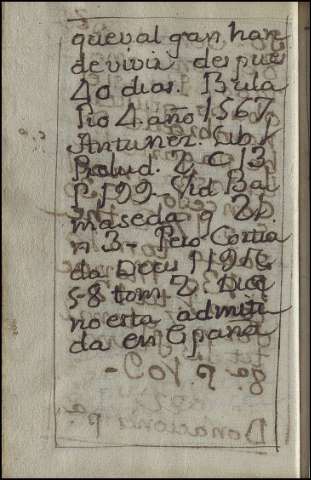 que val gan han
de vivir despues
40 dias. Bula
Pio 4 año 1567
Antunez. Lib. 1
Prelud. 2 C 13
f 199 - Vid Bal
maseda q 2
n 3 - Pero Cortia
da Decis
58 tom 2 Dice
no esta admiti
da en Epana